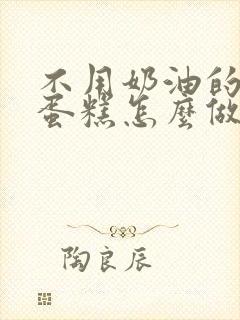 不用奶油的
蛋糕怎麼做
陶良辰